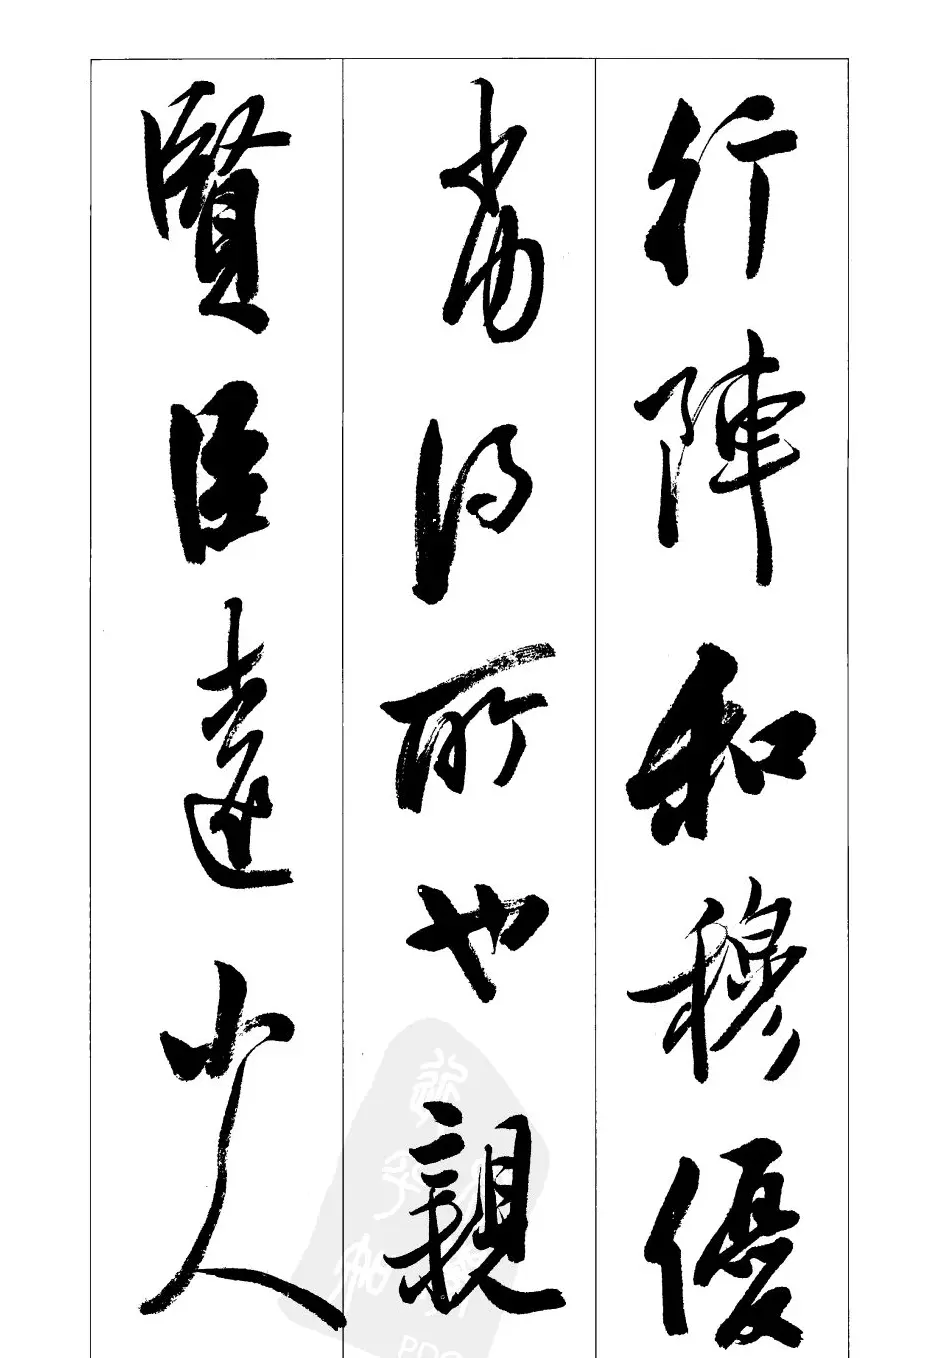 行陣和穆優
劣得所也親
賢臣遠小人